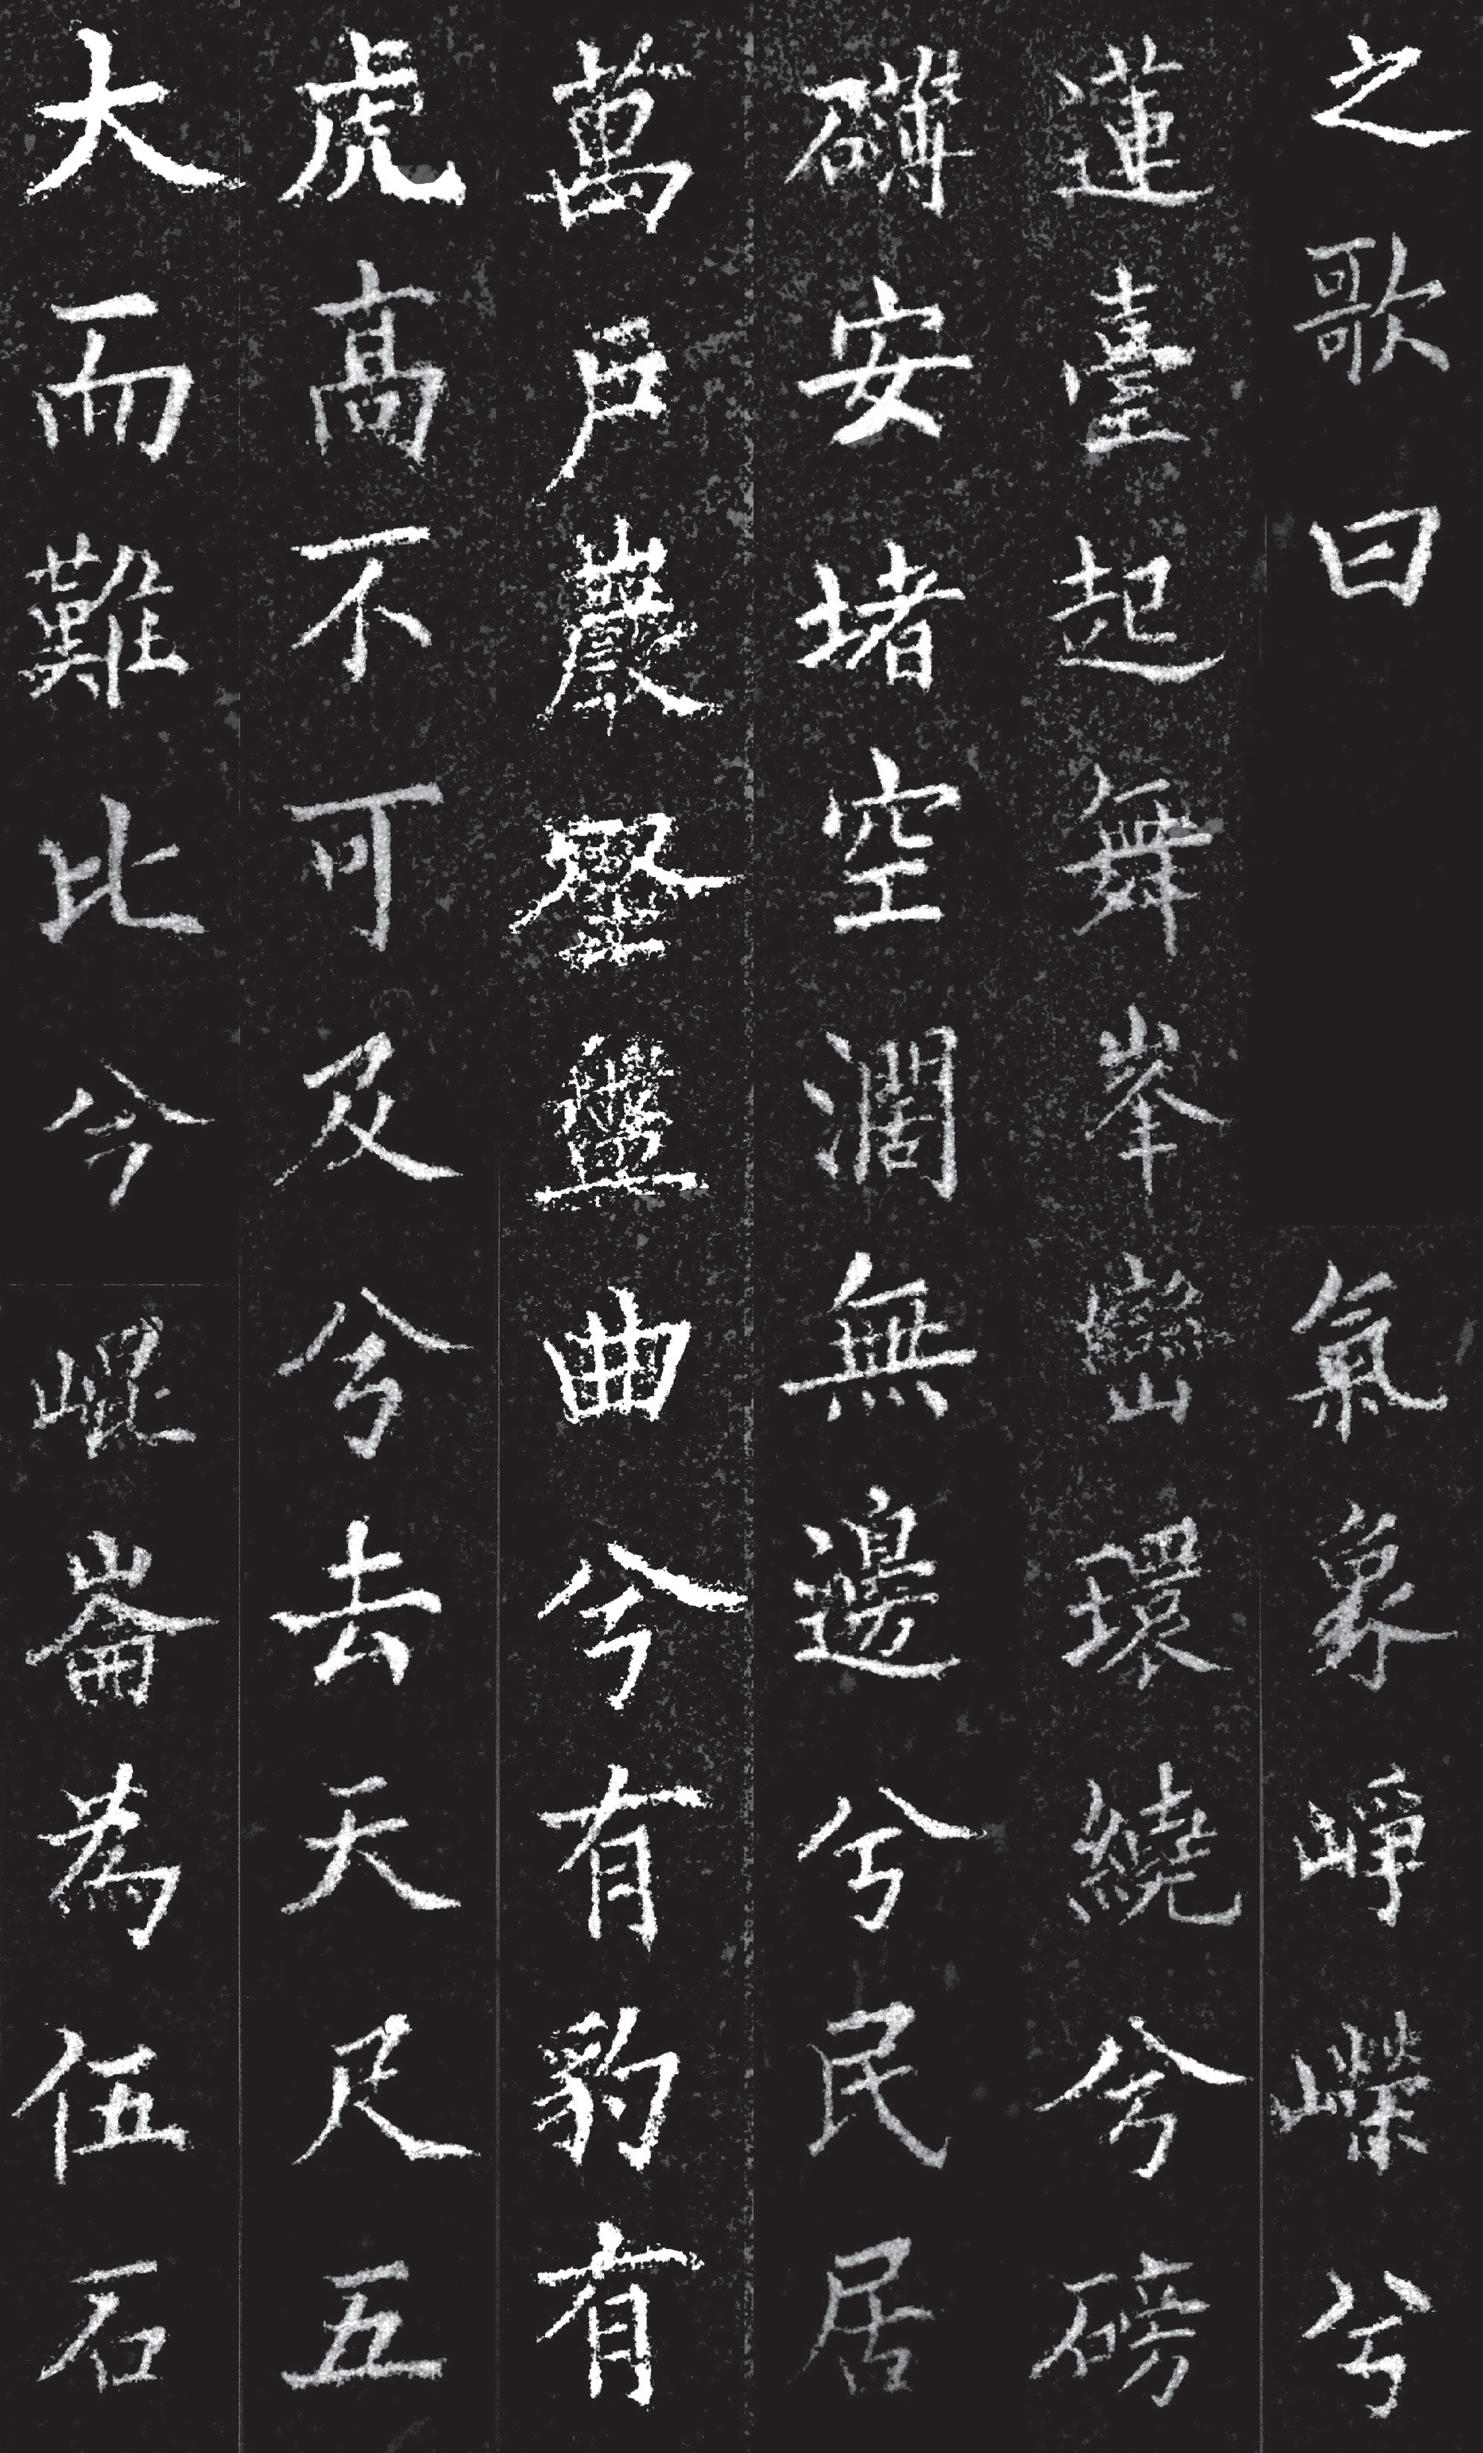 之歌曰　氣象崢嶸兮
蓮臺起舞峯巒環繞兮磅
礴安堵空濶無邊兮民居
萬戶巖壑盤曲兮有豹有
虎高不可及兮去天尺五
大而難比兮崐崙為伍石